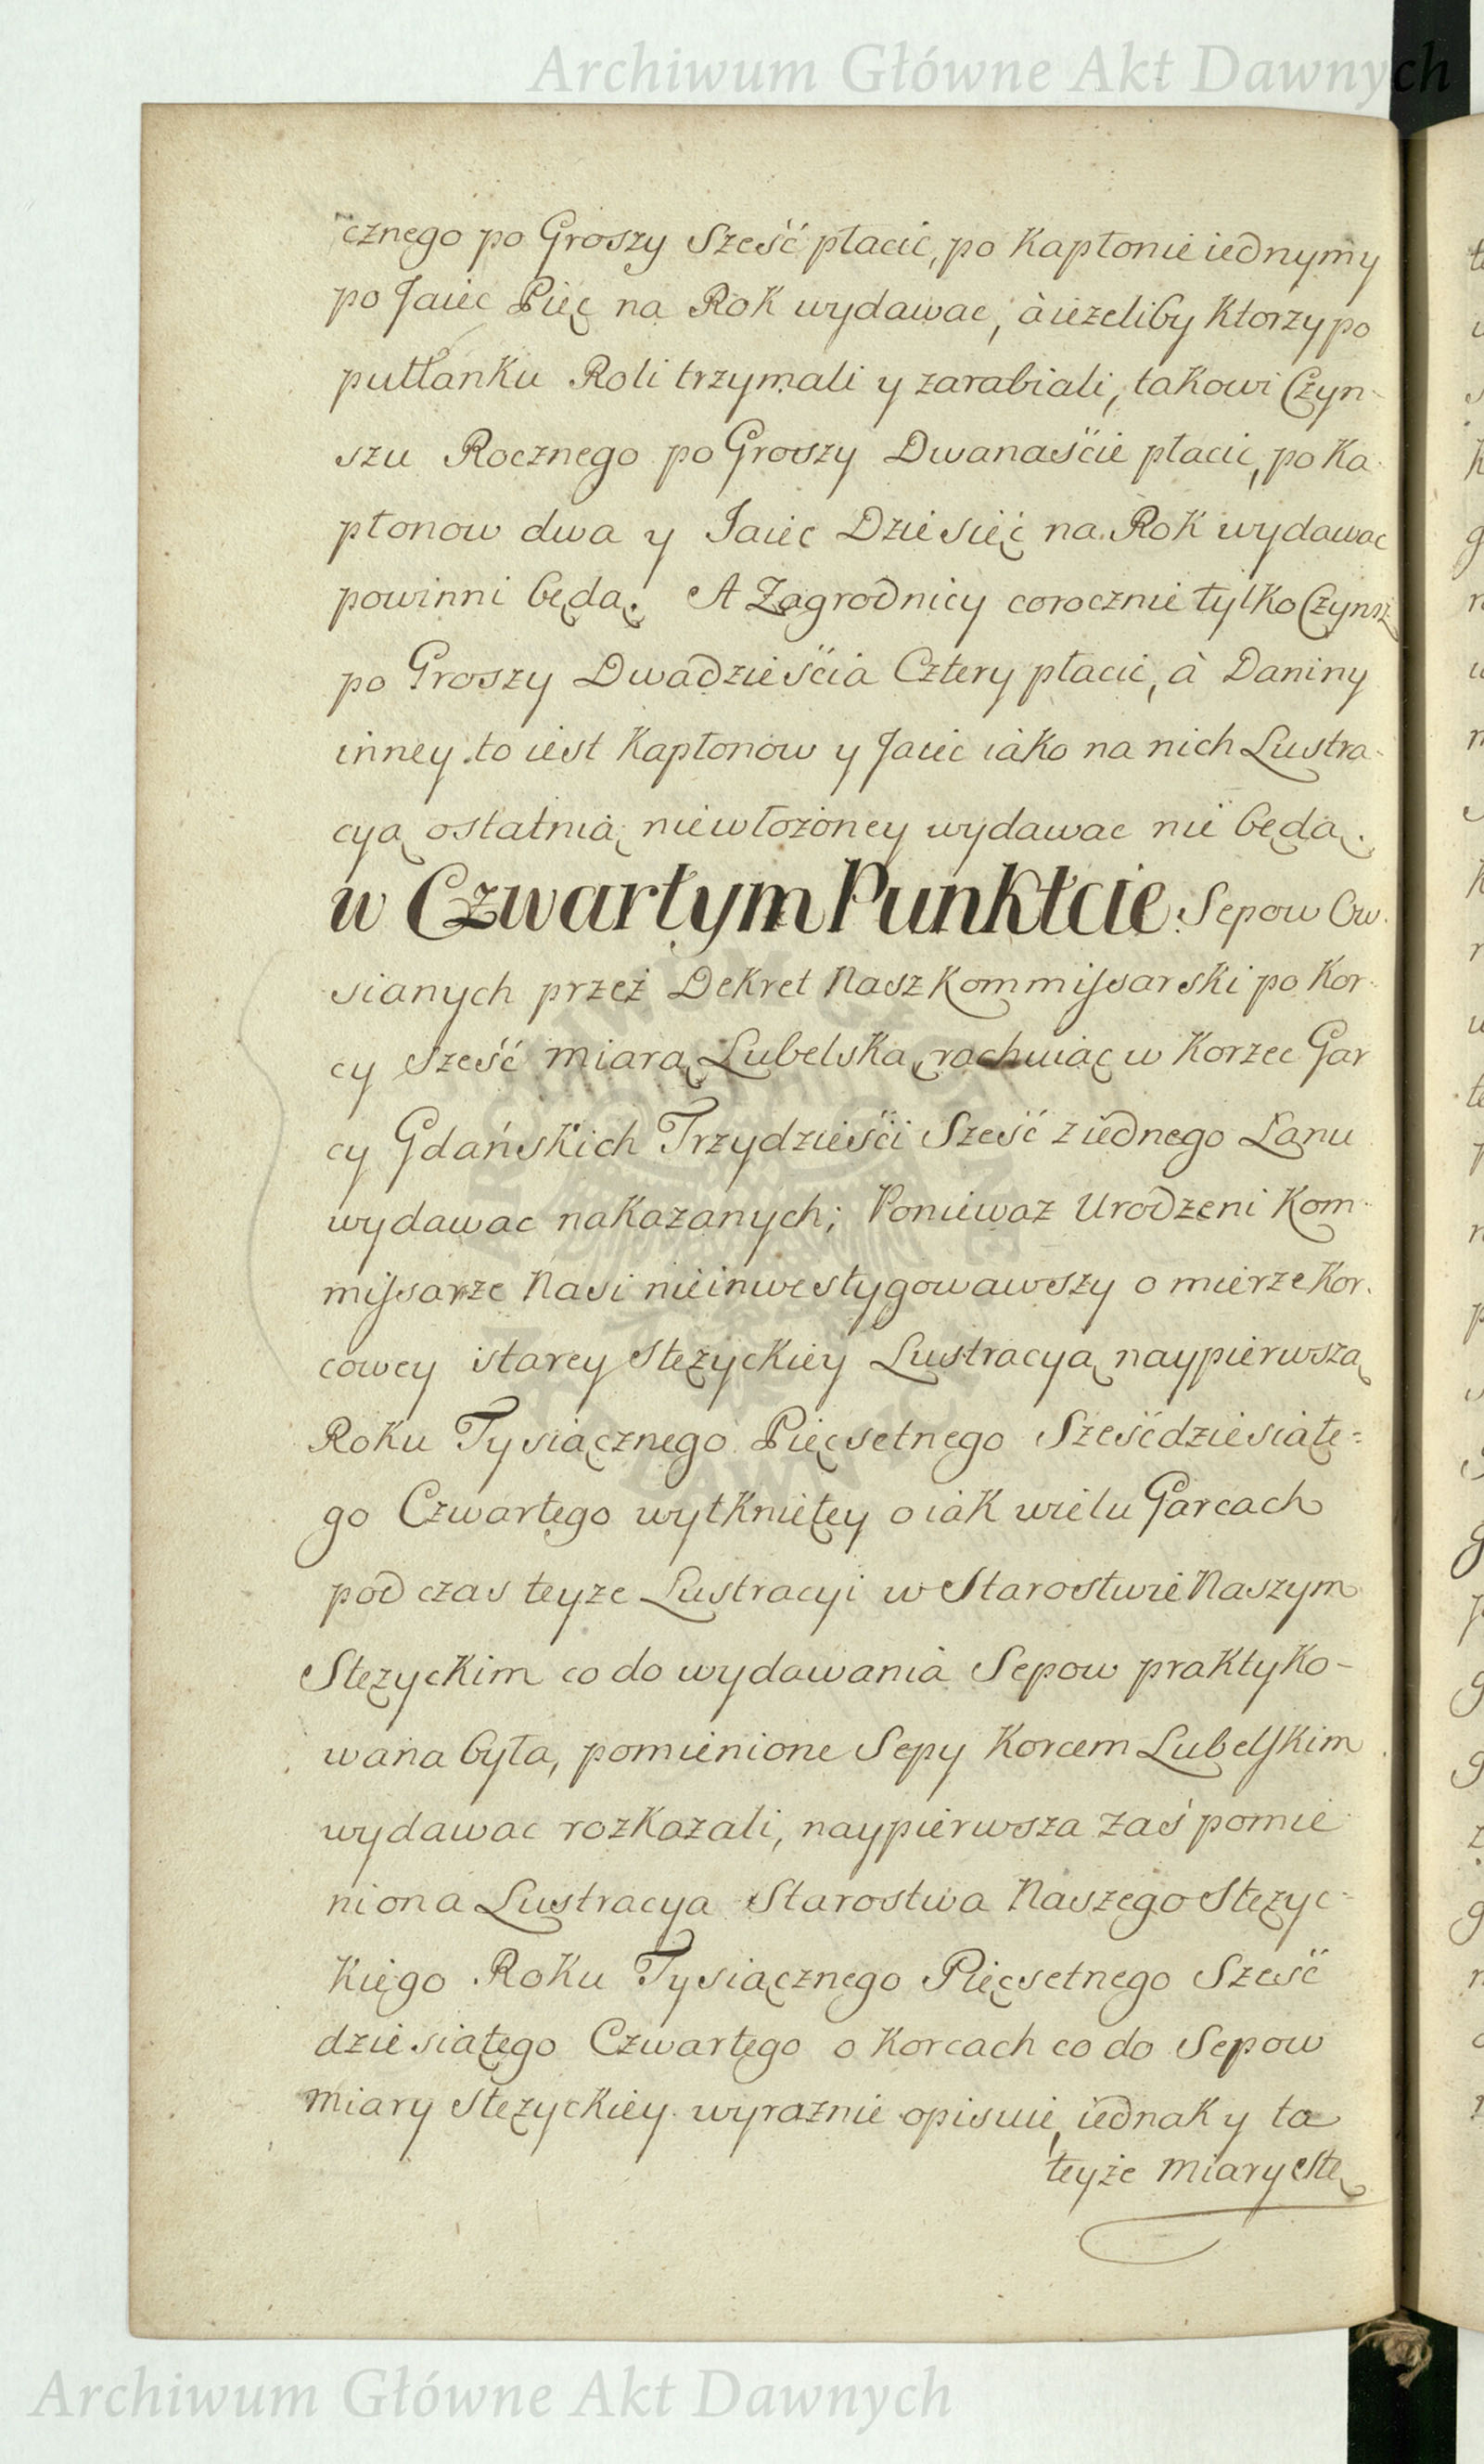 Archiwum Główne Akt Dawnych
cznego po Groszy Sześć płacić, po Kapłonie iednym y
po Jaiec Pięc na Rok wydawac, à ieżeliby Ktorzy po
pułłanku Roli trzymali y zarabiali, takowi Czyn-
szu Rocznego po Groszy Dwanaście płacić, po Ka-
płonow dwa y Jaiec Dziesięć na Rok wydawac
powinni będą. A Zagrodnicy corocznie tylko Czynsz
po Groszy Dwadzieścia Cztery płacić, à Daniny
inney to iest Kapłonow y Jaiec iako na nich Lustra-
cyą ostatnią niewłożoney wydawac nie będą.
w Czwartym Punktcie Sepow Ow-
sianych przez Dekret Nasz Kommissarski po Kor-
cy Sześć miarą Lubelską rachuiąc w Korzec Gar
cy Gdańskich Trzydzieści Sześć z iednego Łanu
wydawac nakazanych; Poniewaz Urodzeni Kom-
missarze Nasi nieinwestygowawszy o mierze Kor-
cowey starey Stężyckiey Lustracyą naypierwszą
Roku Tysiącznego Pięcsetnego Sześćdziesiąte=
go Czwartego wytknietey o iak wielu Garcach
pod czas teyze Lustracyi w Starostwie Naszym
Stezyckim co do wydawania Sepow praktyko-
wana była, pomienione Sepy Korcem Lubelskim
wydawac rozkazali, naypierwsza zaś pomie
niona Lustracya Starostwa Naszego Stężyc-
kiego Roku Tysiącznego Pięcsetnego Sześć
dziesiątego Czwartego o Korcach co do Sepow
miary Stężyckiey wyraznie opisuie, iednak y ta
teyże Miary Stę
Archiwum Główne Akt Dawnych